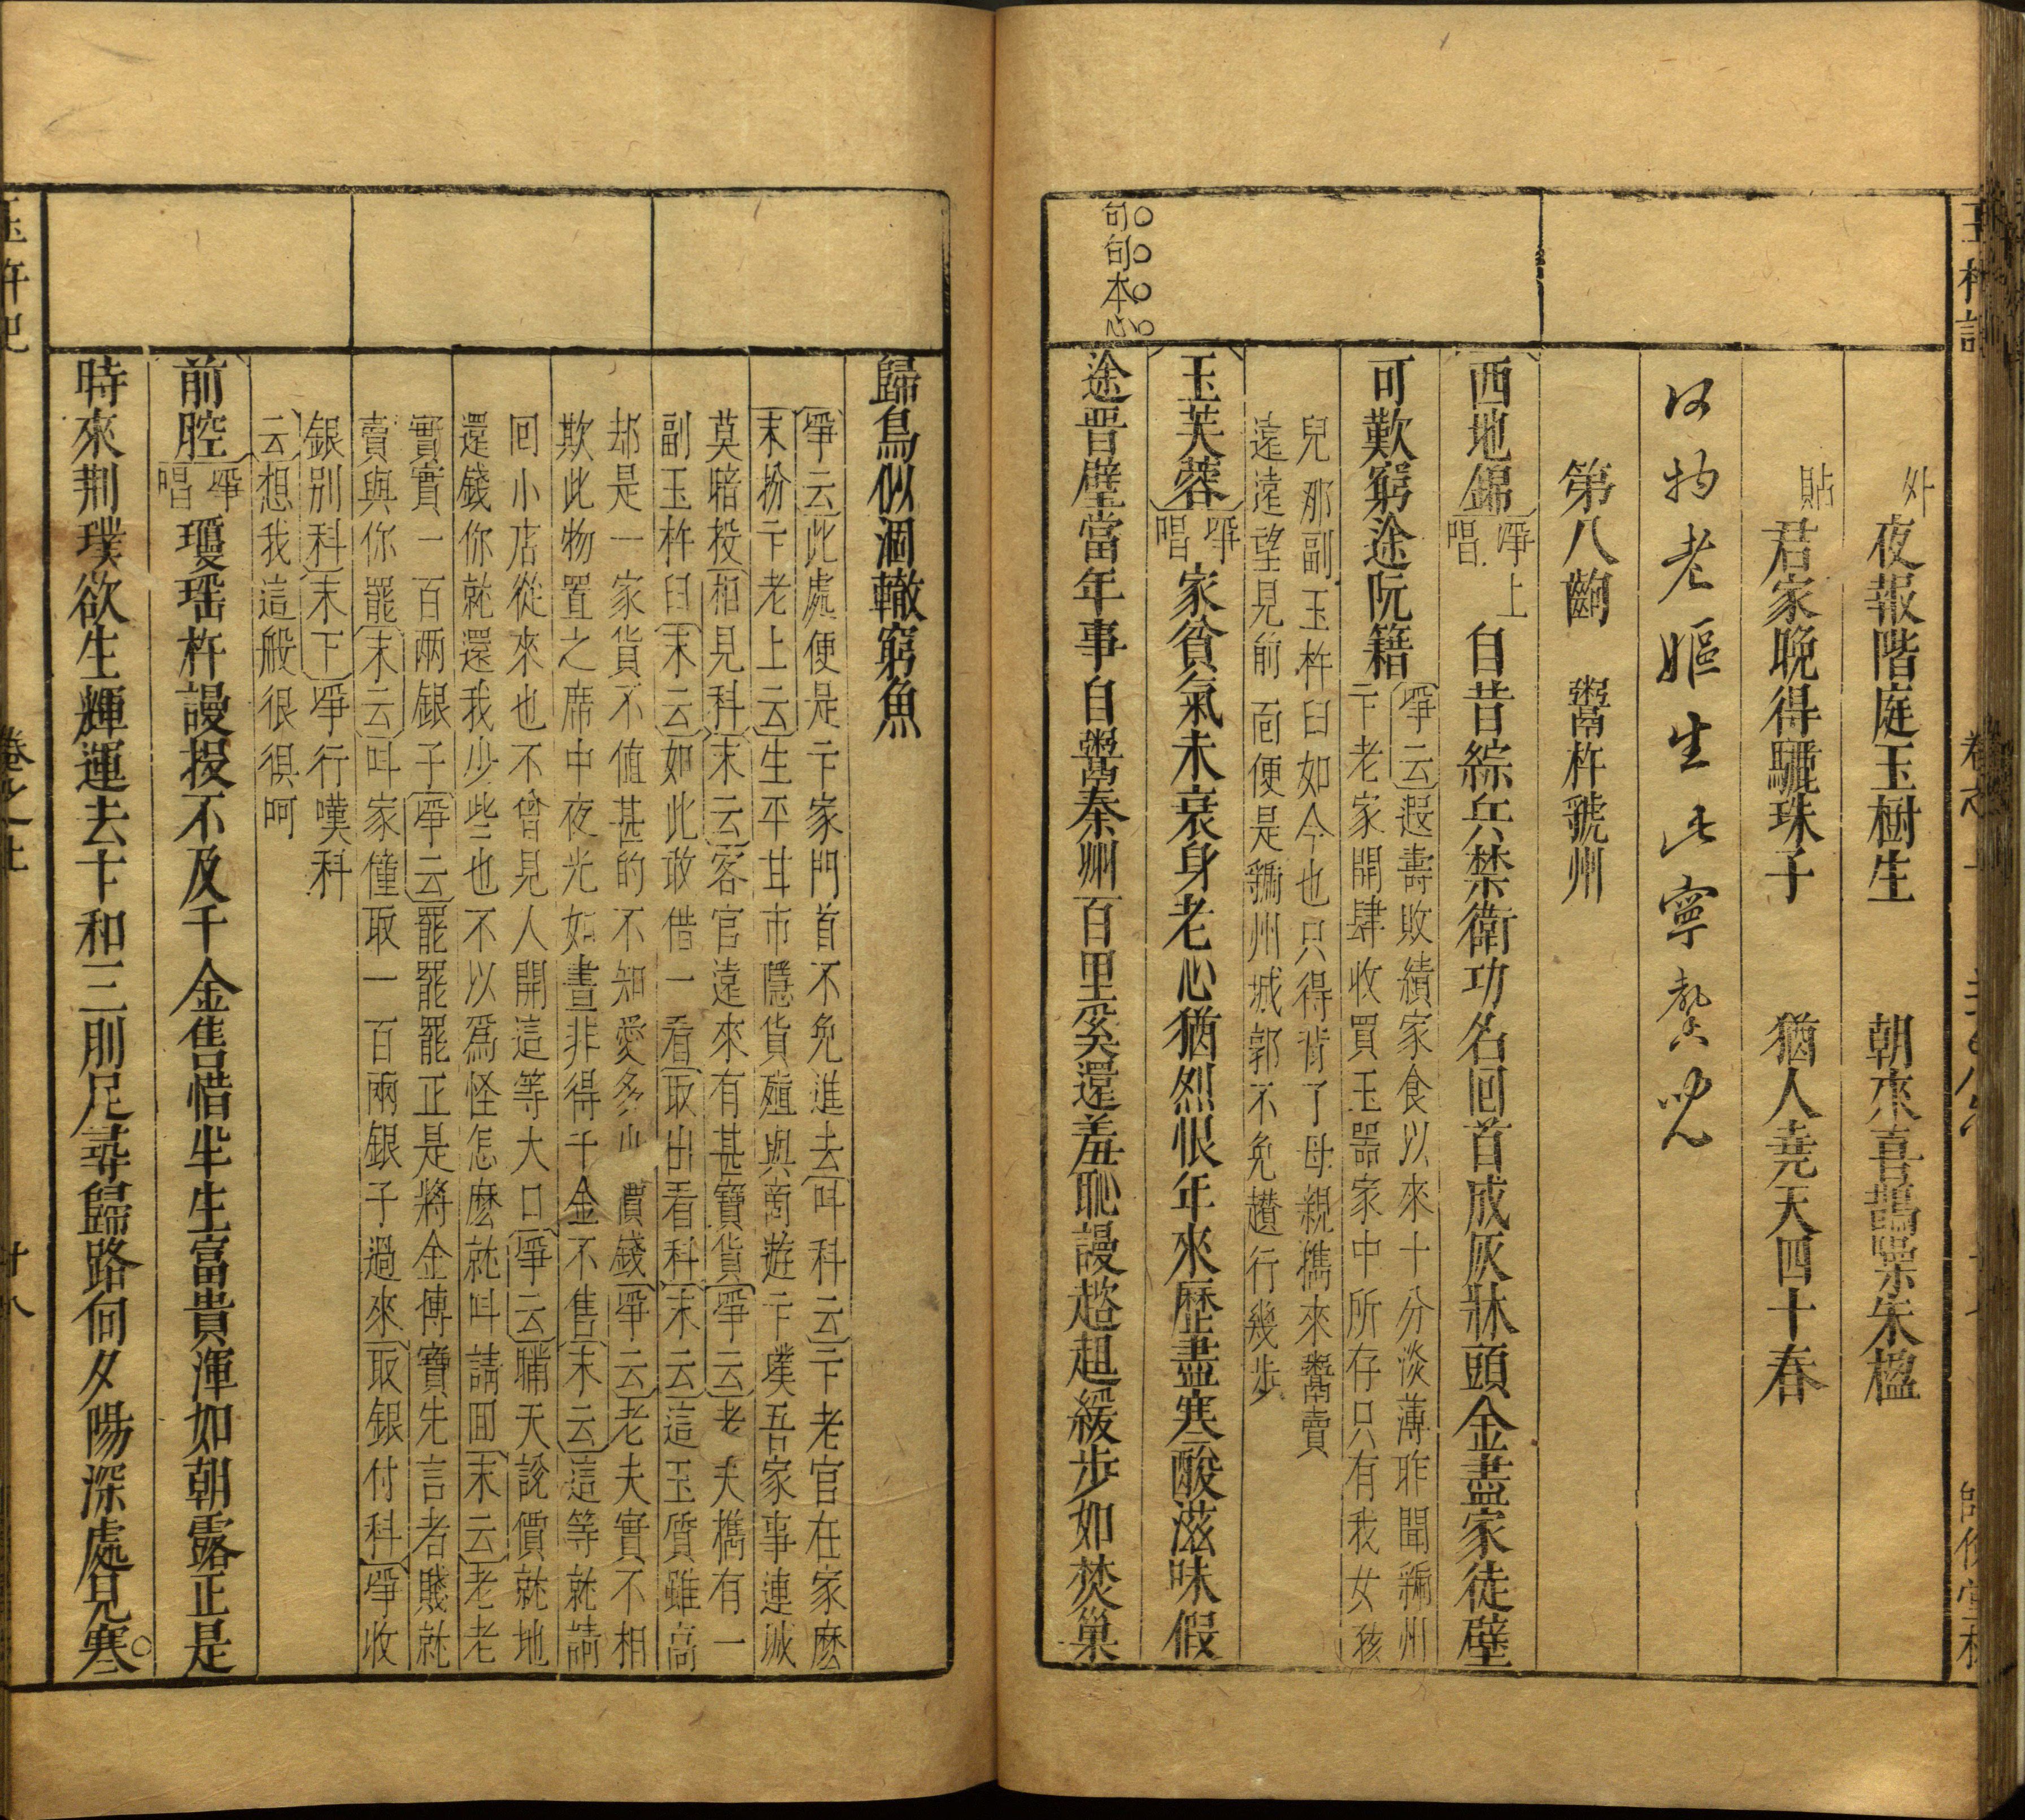 外 夜報階庭玉樹生 朝來喜鵲噪朱楹
貼 君家晚得驪珠子 猶人堯天四十春
何物老嫗生此寧馨兒
第八齣 鬻杵虢州
西地錦 唱 上 自昔綜兵禁衛功名回首成灰牀頭金盡家徒壁
可歎窮途阮籍 云 壽敗績家食以來十分淡薄昨聞 州
卞老家開肆收買玉器家中所存只有我女孩
兒那副玉杵臼如今也只得背了母親攜來鬻賣
遠遠望見前面便是 州城郭不免趲行幾步
句句本心
玉芙蓉 唱 家貧氣未衰身老心猶烈恨年來歷盡寒酸滋味假
途晋璧當年事自鬻秦州百里奚還羞恥謾趦趄緩步如焚巢
歸鳥似涸轍窮魚
云此處便是卞家門首不免進去叫科云卞老官在家麽
末扮卞老上云生平甘市隱貨殖與商遊卞璞吾家事連城
莫暗投相見科末云客官遠來有甚寶貨 云老夫攜有一
副玉杵臼末云如此敢借一看取出看科末云這玉質雖高
却是一家貨不值甚的不知愛多少價錢 云老夫實不相
欺此物置之席中夜光如晝非得千金不售末云這等就請
回小店從來也不曾見人開這等大口 云瞞天說價就地
還錢你就還我少些也不以爲怪怎麽就叫請回末云老老
實實一百兩銀子 云罷罷罷正是將金傅寶先言者賤就
賣與你罷末云叫家僮取一百兩銀子過來取銀付科 收
銀別科末下 行嘆科
云想我這般很狽呵
前腔 唱 瓊瑶杵謾投不及千金售惜半生富貴渾如朝露正是
時來荆璞欲生輝運去卞和三刖足尋歸路何夕陽深處見寒